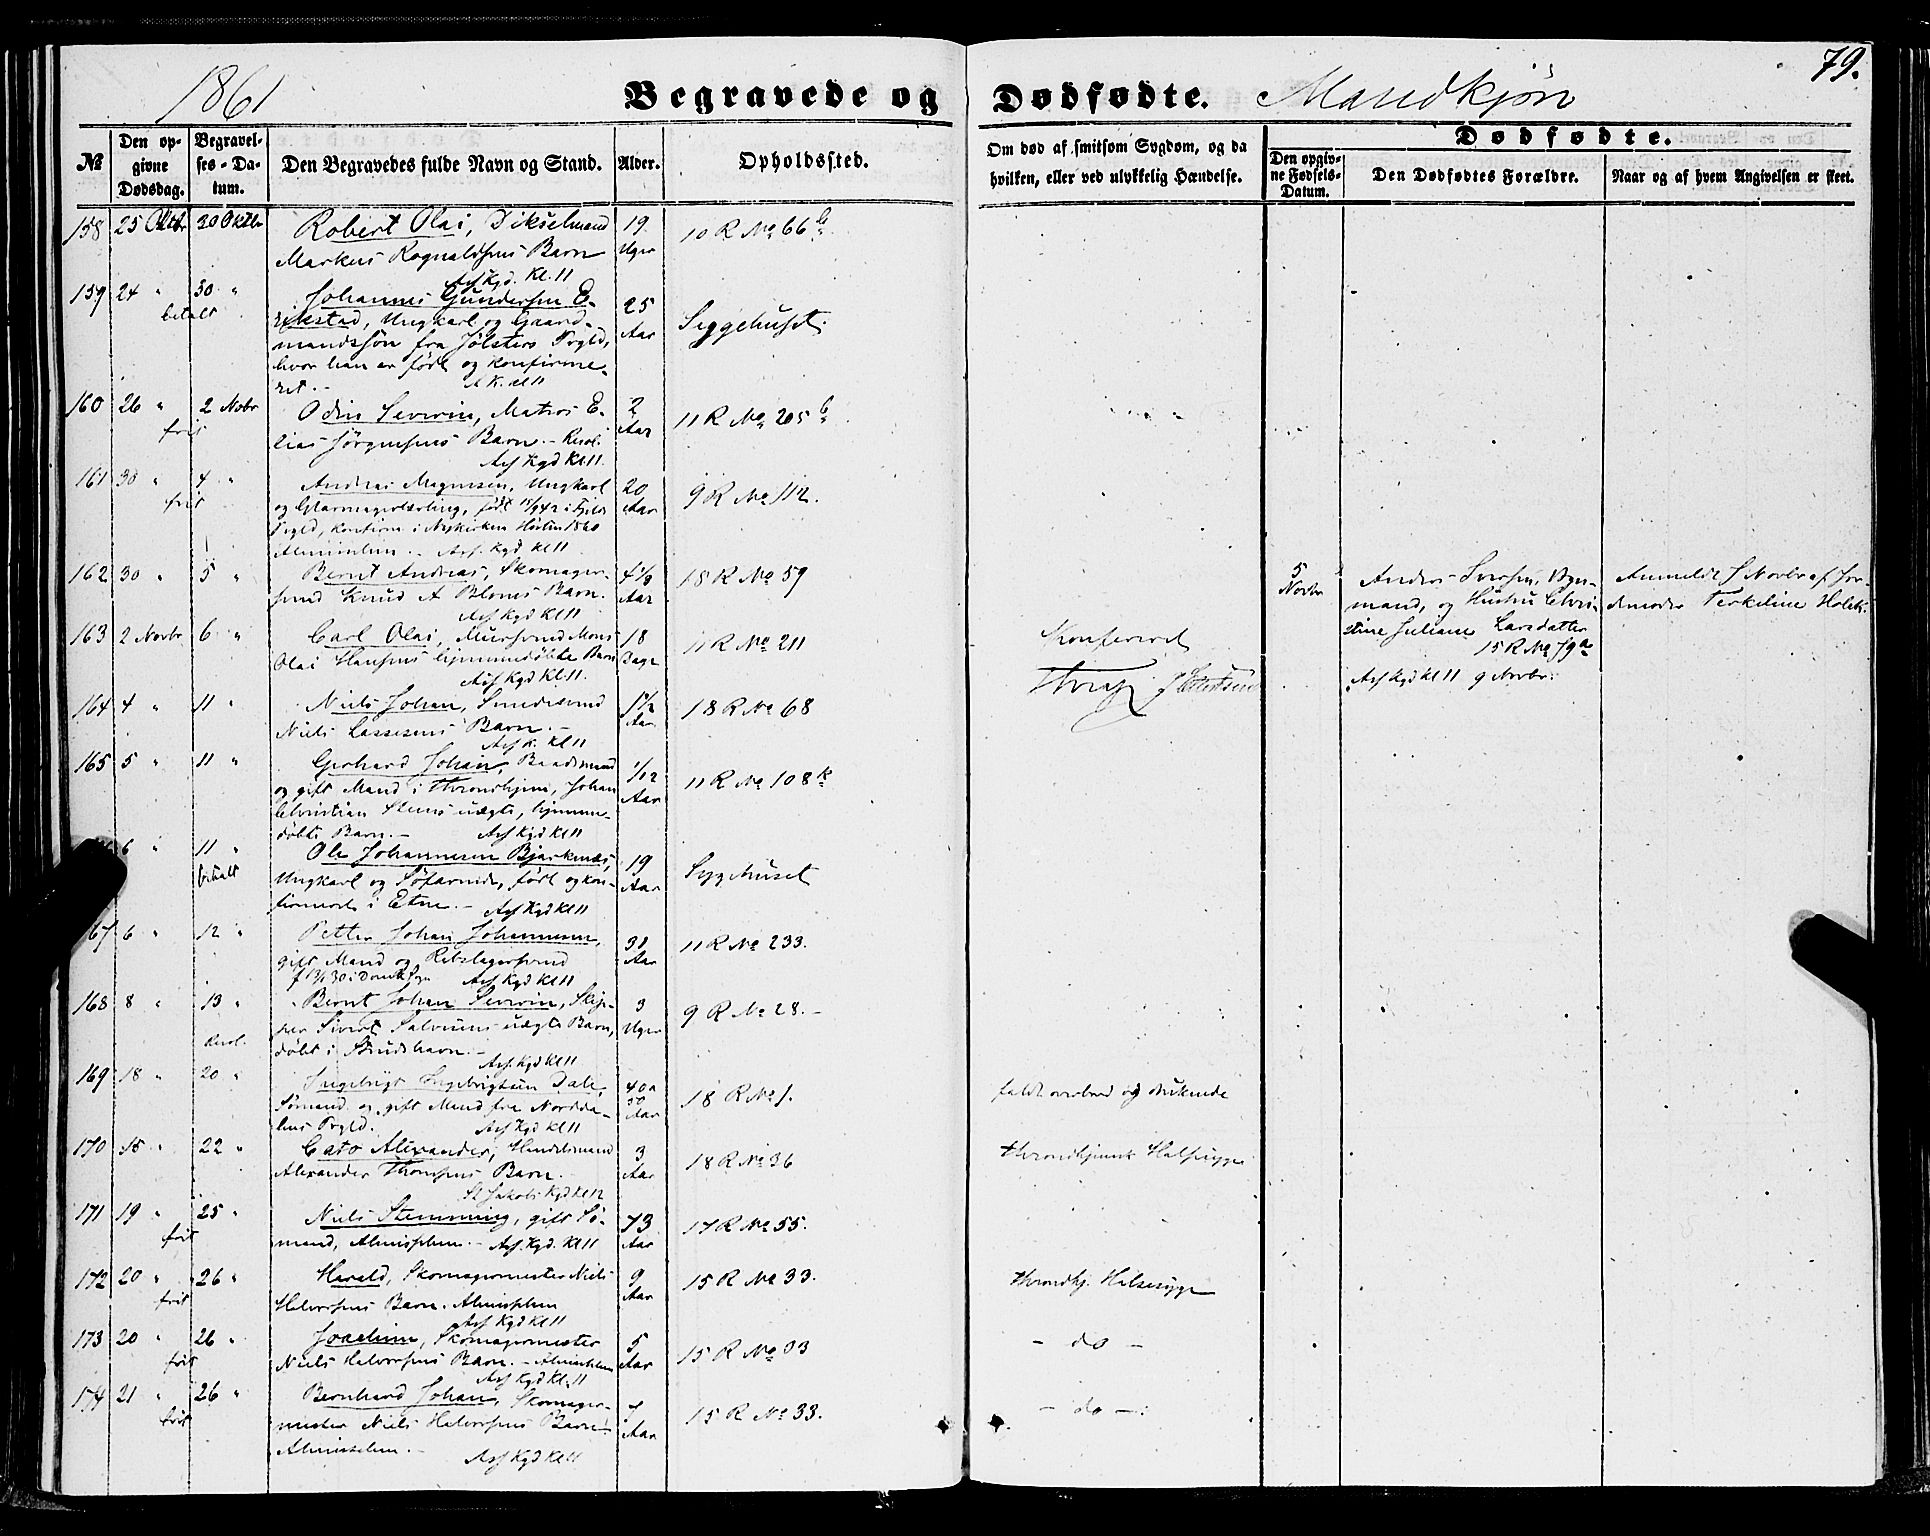 1861
Begravede og Dødfødte. Mandkjøn
79.
№
Den opgivne Dødsdag.
Begravelses-Datum.
Den Begravedes fulde Navn og Stand.
Alder.
Opholdssted.
Om død af smitsom Sygdom, og da
hvilken, eller ved ulykkelig Hændelse.
Dødfødte.
Den opgivne Fødsels-Datum.
Den Dødfødtes Forældre.
Naar og af hvem Angivelsen er skeet.
158 25 Oktbr 30 Oktbr Robert Olai, 19 10 R No 66 b
Markus Rognaldsens Barn Uger
Ass Kgd. Kl. 11
159 24 " 30 " Johannes Gundersen E- 25 Syggehuset
betalt rikstad, Ungkarl og Gaard- Aar
mandssøn fra Jølsters Prgld,
hvor han er født og konfirme-
ret. - A K. Kl 11
160 26 " 2 Novbr Odin Severin, Matros E- 2 11 R No 205 b
frit lias Jørgensens Barn. - Aar
Ass Kgd Kl 11.
161 30 " 4 " Andreas Magnesen, Ungkarl 20 9 R No 112.
frit og Glarmagerlærling, født 15/9 42 i Aar
Prgld, konfirm. i Nykirken Høsten 1860
Ass. Kgd Kl 11
162 30 " 5 " Bernt Andreas, Skomager- 4 1/3 18 R No 59
svend Knud A Bloms Barn. Aar
Ass Kgd Kl 11
5 Novbr Anders Iversen,
mand, og Hustru Chri-
stine Juliane Larsdatter
15 R No 79 a
Ass Kgd Kl 11 9 Novbr.
Anmeldt 5 Novbr af Jor-
demoder Terkeline
163 2 Novbr 6 " Carl Olai, Muursvend Mons 18 11 R No 211
Olai Hansens hjemmedøbte Barn Dage
Ass Kgd Kl 11.
Konfereret
164 4 " 11 " Niels Johan, Smedesvend 1 1/2 18 R No 68
Niels Lassesens Barn. - Aar
Ass K. Kl 11
165 5 " 11 " Gerhard Johan, Baadsmand 1/12 11 R No 108 k
og gift Mand i Throndhjem, Johan Aar
Christian Steens uægte, hjemme-
døbte Barn. - Ass Kgd Kl 11
6 " 11 " Ole Johannesen Bjerkenæs, 19 Sygehuset
betalt Ungkarl og Søfarende, født og kon- Aar
firmeret i Etne. - Ass Kgd Kl 11
67 6 " 12 " Petter Johan Johannesen, 31 11 R No 233.
gift Mand og Rebslagersvend Aar
Ass Kgd Kl 11
168 8 " 13 " Bernt Johan Severin, Skip- 3 9 R No 28. -
per Sivert Salvesens uægte Barn, Uger
døbt i
Ass Kgd Kl 11
169 18 " 20 " Ingebrigt Ingebrigtsen Dale, 40 a 18 R No 1.
Sømand og gift Mand fra Nordda- 50
lens Prgld. Aar
Ass Kgd Kl 11
faldt overbord og druknede
170 15 " 22 " Cato Alexander, Handelsmand 3 18 R No 36
Alexander Thomsens Barn. Aar
St Jakobs Kgd Kl 12
Throndhjemsk Halssyge
171 19 " 25 " Niels Stemming, gift Sø- 73 17 R No 55.
frit mand, Almisselem. - Ass. Kgd. Kl 11 Aar
172 20 " 26 " Harald, Skomagermester Niels 9 15 R No 33.
frit Halvorsens Barn. Almisselem Aar
Ass Kgd Kl 11
throndhj. Halssyge
173 20 " 26 " Joachim, Skomagermester 5 15 R No 33
frit Niels Halvorsens Barn. - Almisselem Aar
Ass Kgd Kl. 11
- do -
174 21 " 26 " Bernhard Johan, Skomager- 7 15 R No 33.
frit mester Niels Halvorsens Barn. Aar
Almisselem. -
Ass Kgd Kl 11
- do -